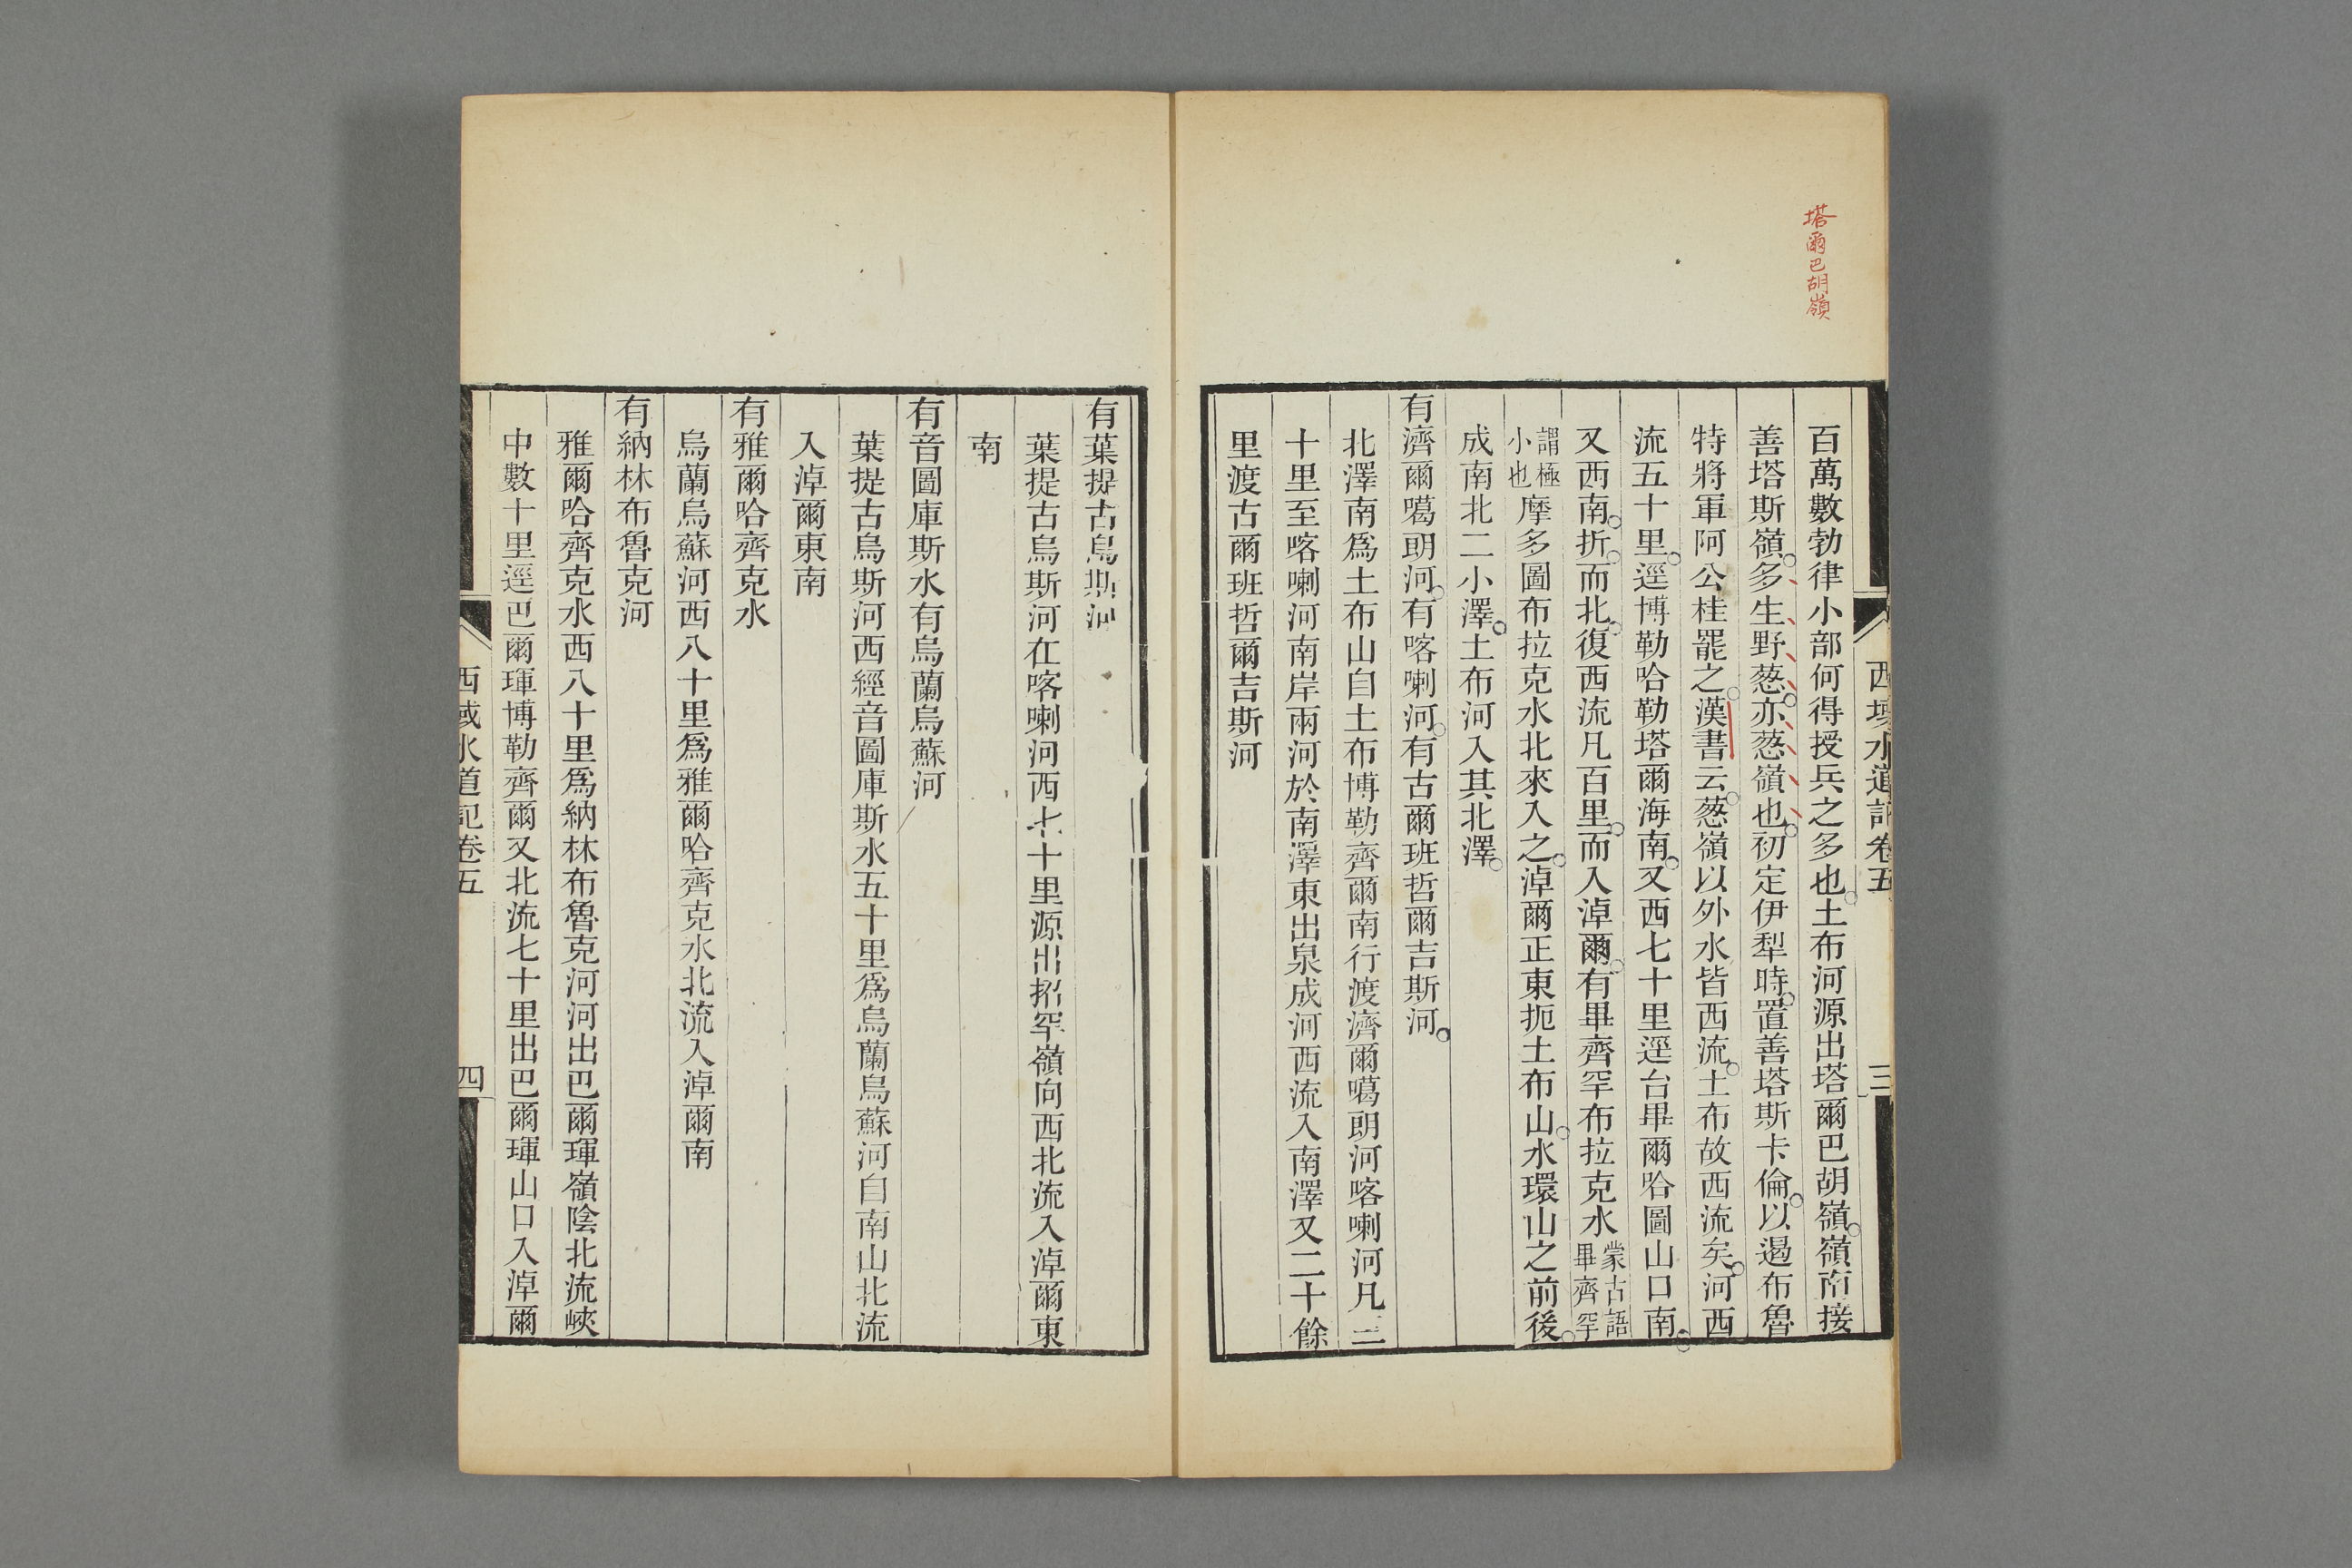 塔爾巴胡嶺
西域水道記卷五
三
百萬數勃律小部何得授兵之多也土布河源出塔爾巴胡嶺嶺南接
善塔斯嶺多生野蔥亦蔥嶺也初定伊犁時置善塔斯卡倫以遏布魯
特將軍阿公桂罷之漢書云蔥嶺以外水皆西流土布故西流矣河西
流五十里逕博勒哈勒塔爾海南又西七十里逕台畢爾哈圖山口南
又西南折而北復西流凡百里而入淖爾有畢齊罕布拉克水蒙古語畢齊罕
謂極小也摩多圖布拉克水北來入之淖爾正東扼土布山水環山之前後
成南北二小澤土布河入其北澤
有濟爾噶朗河有喀喇河有古爾班哲爾吉斯河
北澤南爲土布山自土布博勒齊爾南行渡濟爾噶朗河喀喇河凡三
十里至喀喇河南岸兩河於南澤東出泉成河西流入南澤又二十餘
里渡古爾班哲爾吉斯河
有葉提古烏斯河
葉提古烏斯河在喀喇河西七十里源出招罕嶺向西北流入淖爾東
南
有音圖庫斯水有烏蘭烏蘇河
葉提古烏斯河西經音圖庫斯水五十里爲烏蘭烏蘇河自南山北流
入淖爾東南
有雅爾哈齊克水
烏蘭烏蘇河西八十里爲雅爾哈齊克水北流入淖爾南
有納林布魯克河
雅爾哈齊克水西八十里爲納林布魯克河河出巴爾琿嶺陰北流峽
中數十里逕巴爾琿博勒齊爾又北流七十里出巴爾琿山口入淖爾
西域水道記卷五
四